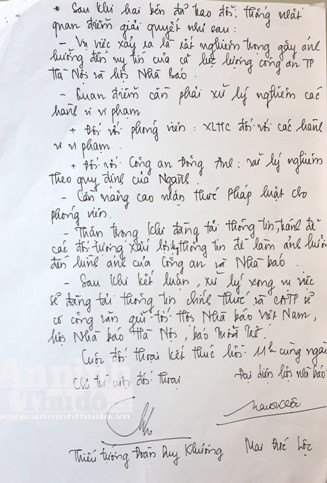 * Sau khi hai bên đã trao đổi, thống nhất
quan điểm giải quyết như sau:
- Vụ việc xảy ra là rất nghiêm trọng gây ảnh
hưởng đến uy tín của cả lực lượng công an TP
Hà Nội và hội Nhà báo.
- Quan điểm cần phải xử lý nghiêm các
hành vi vi phạm
+ Đối với phóng viên: XLHC đối với các hành
vi vi phạm.
+ Đối với Công an Đông Anh: xử lý nghiêm
theo quy định của Ngành.
- Cần nâng cao nhận thức pháp luật cho
phóng viên.
- Thận trọng khi đăng tải thông tin, tránh để
các đối tượng xấu lợi dụng thông tin để làm ảnh hưởng
đến hình ảnh của Công an và Nhà báo.
- Sau khi kết luận, xử lý xong vụ việc
sẽ đăng tải thông tin chính thức và CATP sẽ
có công văn gửi tới Hội Nhà báo Việt Nam,
hội Nhà báo Hà Nội, báo Tuổi Trẻ.
Cuộc đối thoại kết thúc hồi 11h cùng ngày
Chủ trì cuộc đối thoại
Đại diện hội nhà báo
An ninh
Thủ đô
www.anninhthudo.vn
Thiếu tướng Đoàn Duy Khương
Mai Đức Lộc